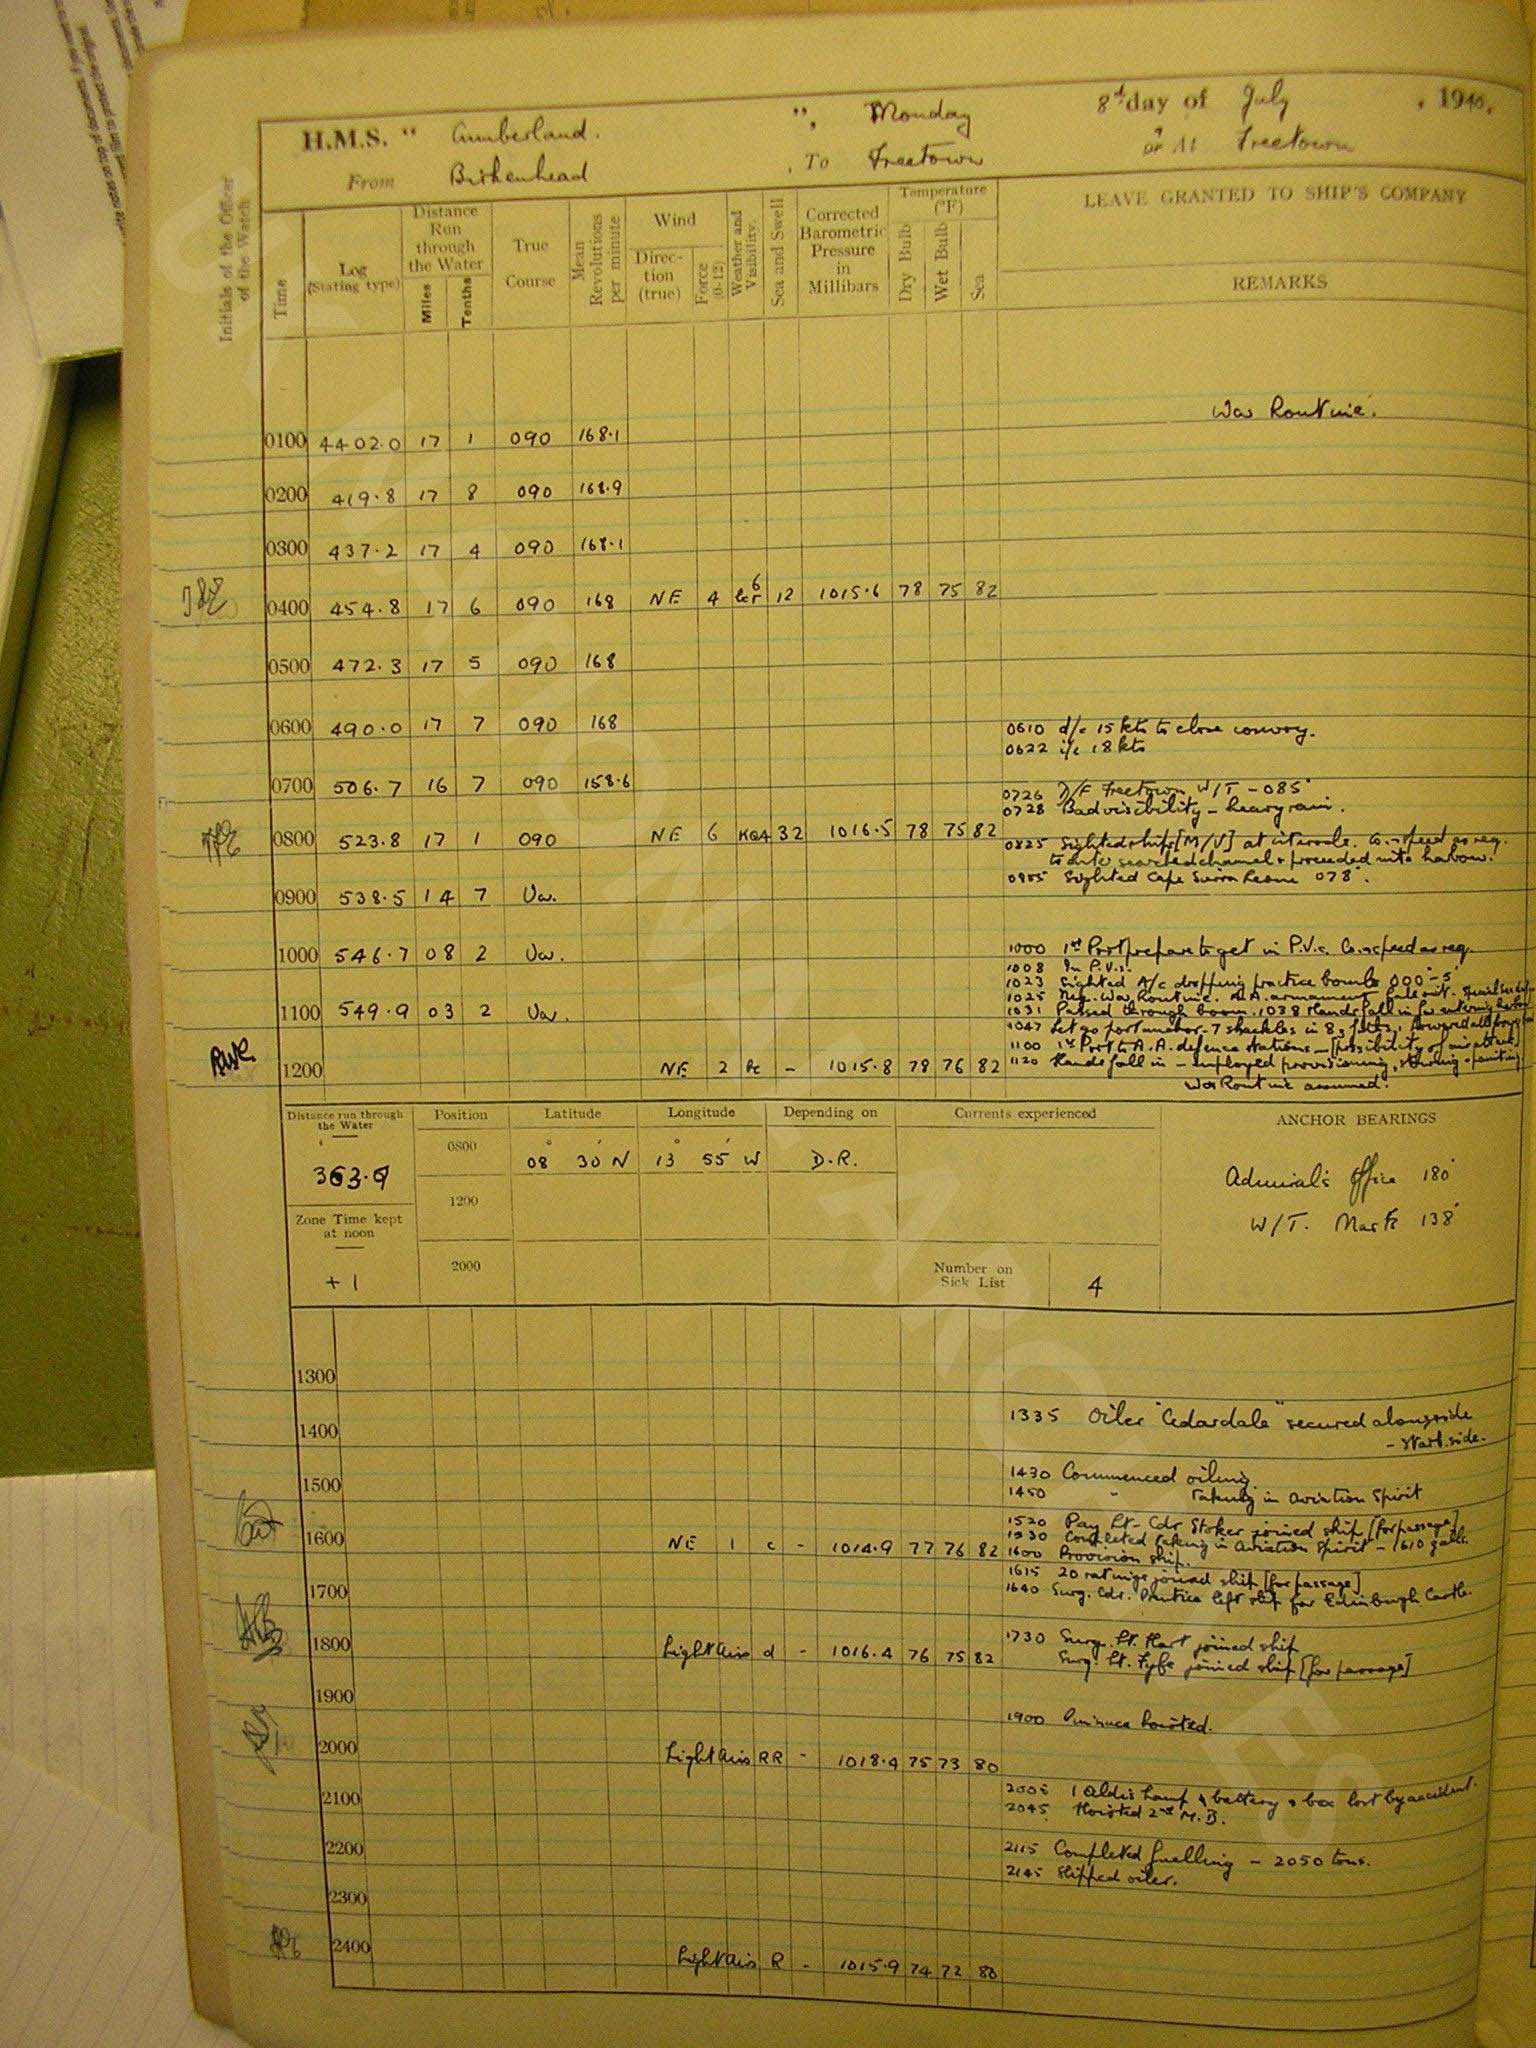 H.M.S. " Cumberland. ", Monday 8th day of July , 1940.
From Birkenhead , To Freetown or At Freetown
Initials of the Officer of the Watch
Time
Log (Stating type)
Distance Run through the Water
Miles
Tenths
True Course
Mean Revolutions per minute
Wind
Direc-tion (true)
Force (0-12)
Weather and Visibility.
Sea and Swell
Corrected Barometric Pressure in Millibars
Temperature (°F)
Dry Bulb
Wet Bulb
Sea
LEAVE GRANTED TO SHIP'S COMPANY
REMARKS
War Routine.
0100 4402.0 17 1 090 168.1
0200 419.8 17 8 090 168.9
0300 437.2 17 4 090 168.1
0400 454.8 17 6 090 168 NE 4 6 12 1015.6 78 75 82
0500 472.3 17 5 090 168
0600 490.0 17 7 090 168
0610 d/c 15 kts to close convoy.
0622 i/c 18 kts
0700 506.7 16 7 090 158.6
0726 D/F Freetown W/T - 085°
0728 Bad visibility - heavy rain.
0800 523.8 17 1 090 NE 6 32 1016.5 78 75 82
0825 Sighted ships [M/V] at intervals. Co. + speed as req.
to enter searched channel & proceeded into harbour.
Sighted Cape Sierra Leone 078°.
0900 538.5 14 7 Var.
1000 546.7 08 2 Var.
1000 1st Port prepare to get in P.V.s. Co. + speed as req.
1008 In P.V.s.
1023 Sighted A/c dropping practice bombs 000° - 5'
1025 Neg. War Routine. A.A. armament fall out.
1031 Passed through boom. 1038 Hands fall in for entering harbour
1100 549.9 03 2 Var.
1047 Let go port anchor - 7 shackles in 8½ faths.
1100 1st Port to A.A. defence stations - [possibility of air attack]
1200 NE 2 bc - 1015.8 79 76 82
1120 Hands fall in - employed provisioning, storing & painting
War Routine assumed.
Distance run through the Water
363.9
Zone Time kept at noon
+ 1
Position Latitude Longitude Depending on Currents experienced ANCHOR BEARINGS
0800 08° 30' N 13° 55' W D.R.
1200
2000
Number on Sick List 4
Admiral's Office 180°
W/T. Mast 138°
1300
1335 Oiler "Cedardale" secured alongside
- Starb. side.
1400
1430 Commenced oiling
1450 " Taking in Aviation Spirit
1500
1520 Pay Lt-Cdr Stoker joined ship [for passage]
1530 Completed taking in Aviation Spirit - 1610 galls.
1600 NE 1 c - 1014.9 77 76 82
1600 Provision ship.
1615 20 ratings joined ship [for passage]
1640 Surg. Cdr. Prentice left ship for Edinburgh Castle.
1700
1730 Surg. Lt. Hart joined ship
Surg. Lt. Fyfe joined ship [for passage]
1800 Light Airs d - 1016.4 76 75 82
1900
1900 Pinnace hoisted.
2000 Light Airs RR - 1018.4 75 73 80
2005 1 Aldis Lamp & battery & box lost by accident.
2045 Hoisted 2nd M.B.
2100
2115 Completed fuelling - 2050 tons.
2145 Slipped oiler.
2200
2300
2400 Light Airs R - 1015.9 74 72 80